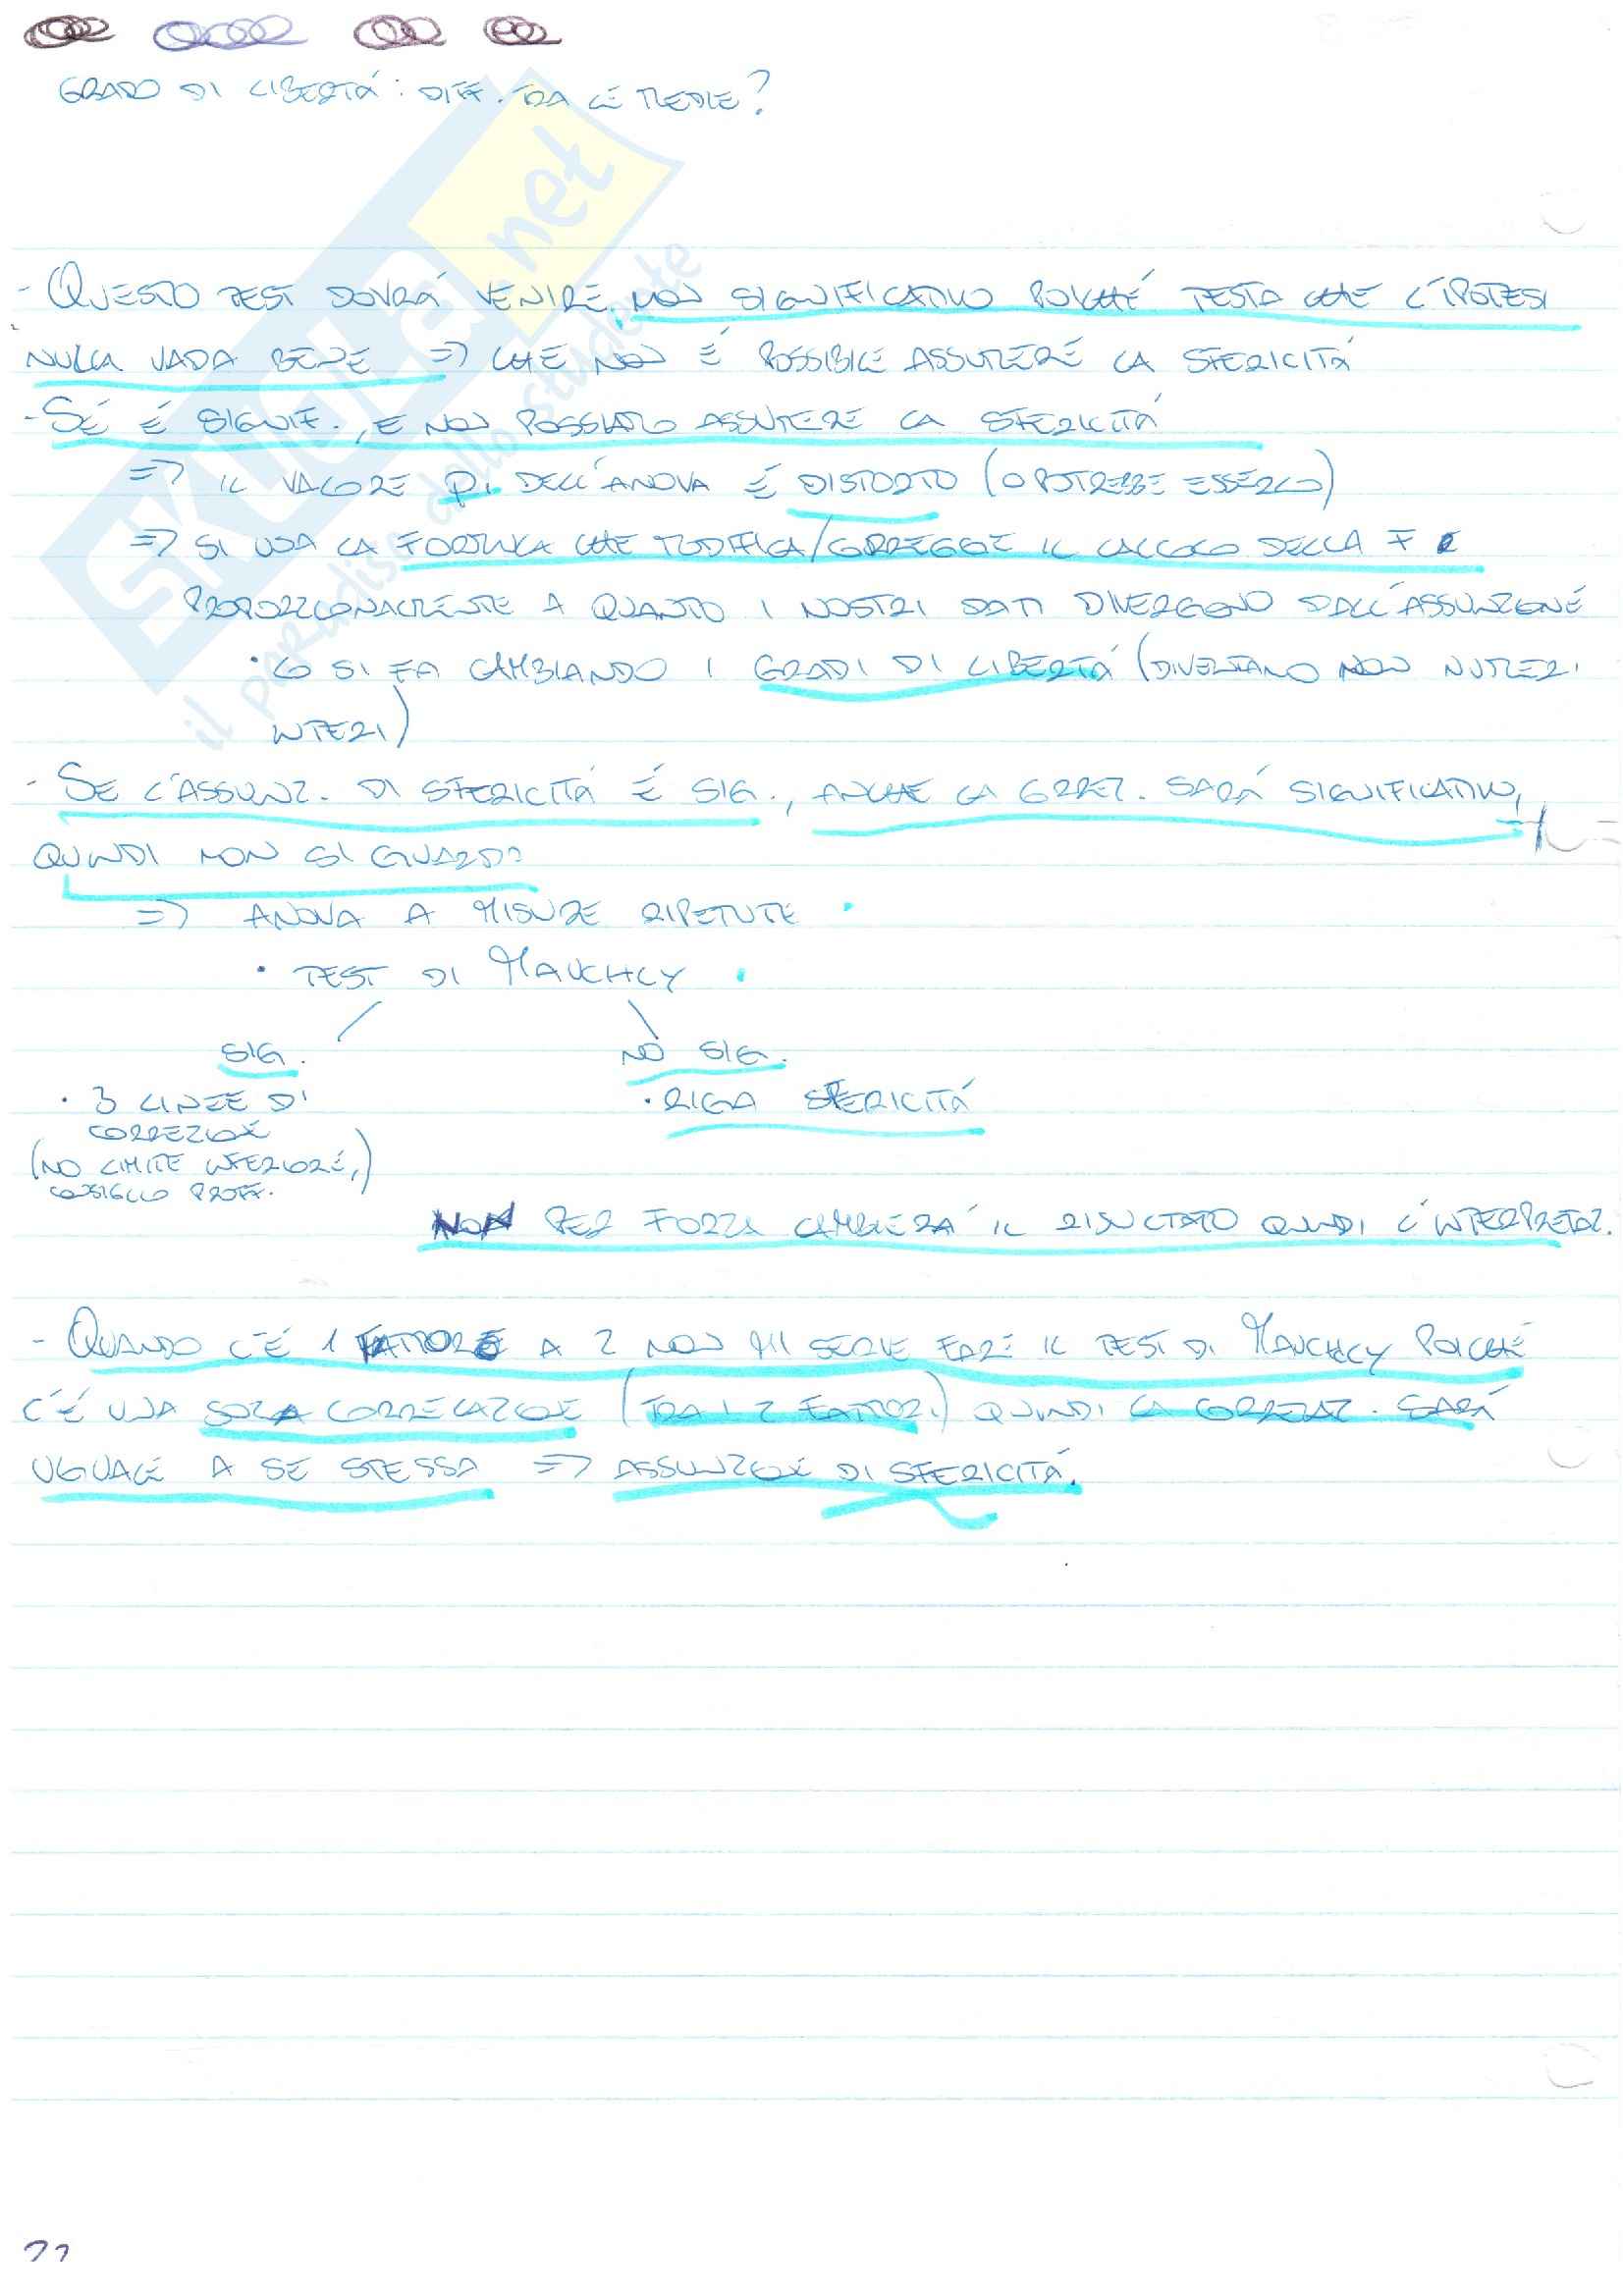 GRADO DI LIBERTÁ: DIFF. TRA LE MEDIE?
SKUOLA.net
il paradiso dello studente
- QUESTO TEST DOVRÁ VENIRE NON SIGNIFICATIVO POICHÉ TESTA CHE L'IPOTESI
NULLA VADA BENE => CHE NON É POSSIBILE ASSUMERE LA SFERICITÁ
- SE É SIGNIF., E NON POSSIAMO ASSUMERE LA SFERICITÁ
=> IL VALORE DELL'ANOVA É DISTORTO (O POTREBBE ESSERLO)
=> SI USA LA FORMULA CHE MODIFICA/CORREGGE IL CALCOLO DELLA F E
PROPORZIONALMENTE A QUANTO I NOSTRI DATI DIVERGONO DALL'ASSUNZIONE
• LO SI FA CAMBIANDO I GRADI DI LIBERTÁ (DIVENTANO NON NUMERI
INTERI)
- SE L'ASSUNZ. DI SFERICITÁ É SIG., ANCHE LA CORREZ. SARÁ SIGNIFICATIVA,
QUINDI NON SI GUARDA
=> ANOVA A MISURE RIPETUTE
• TEST DI MAUCHLY
SIG. NO SIG.
• 3 LINEE DI • RIGA SFERICITÁ
CORREZIONE
(NO LIMITE INFERIORE,)
CONSIGLIO PROFF.
NON PER FORZA CAMBIERÁ IL RISULTATO QUINDI L'INTERPRETAZ.
- QUANDO C'É 1 FATTORE A 2 NON MI SERVE FARE IL TEST DI MAUCHLY POICHÉ
C'É UNA SOLA CORRELAZIONE (TRA I 2 FATTORI) QUINDI LA CORRELAZ. SARÁ
UGUALE A SE STESSA => ASSUNZIONE DI SFERICITÁ.